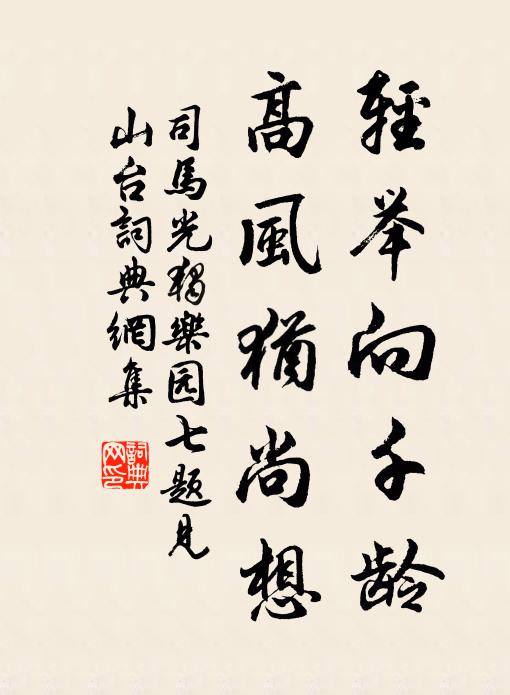 輕举向千龄
高風猶尚想
司馬光獨樂园七题見
山台詞典網集
詞典
网印